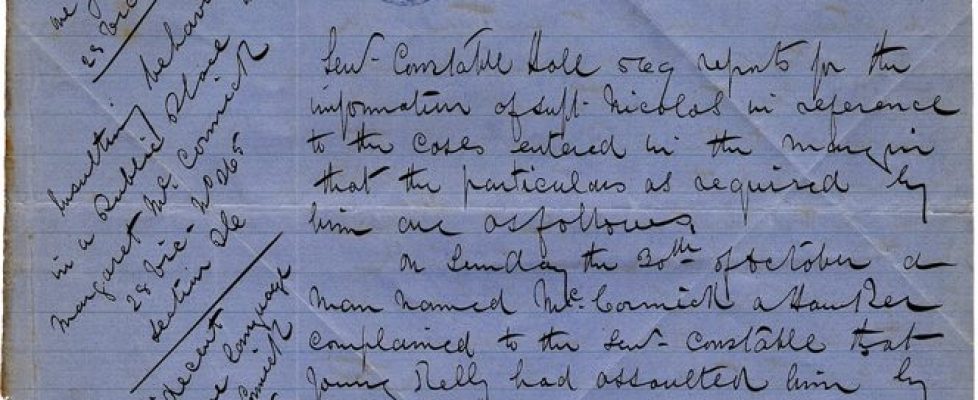 28 Vic
Insulting behav
in a Public Place
Margaret McCormick
28 Vic - No 265
Section
decent
language
Cormick
Senr Constable Hall reports for the
information of Supt Nicolas in reference
to the cases entered in the margin
that the particulars as required by
him are as follows,
On Sunday the 30th of October a
man named McCormick a Hawker
complained to the Senr Constable that
young Kelly had assaulted him by